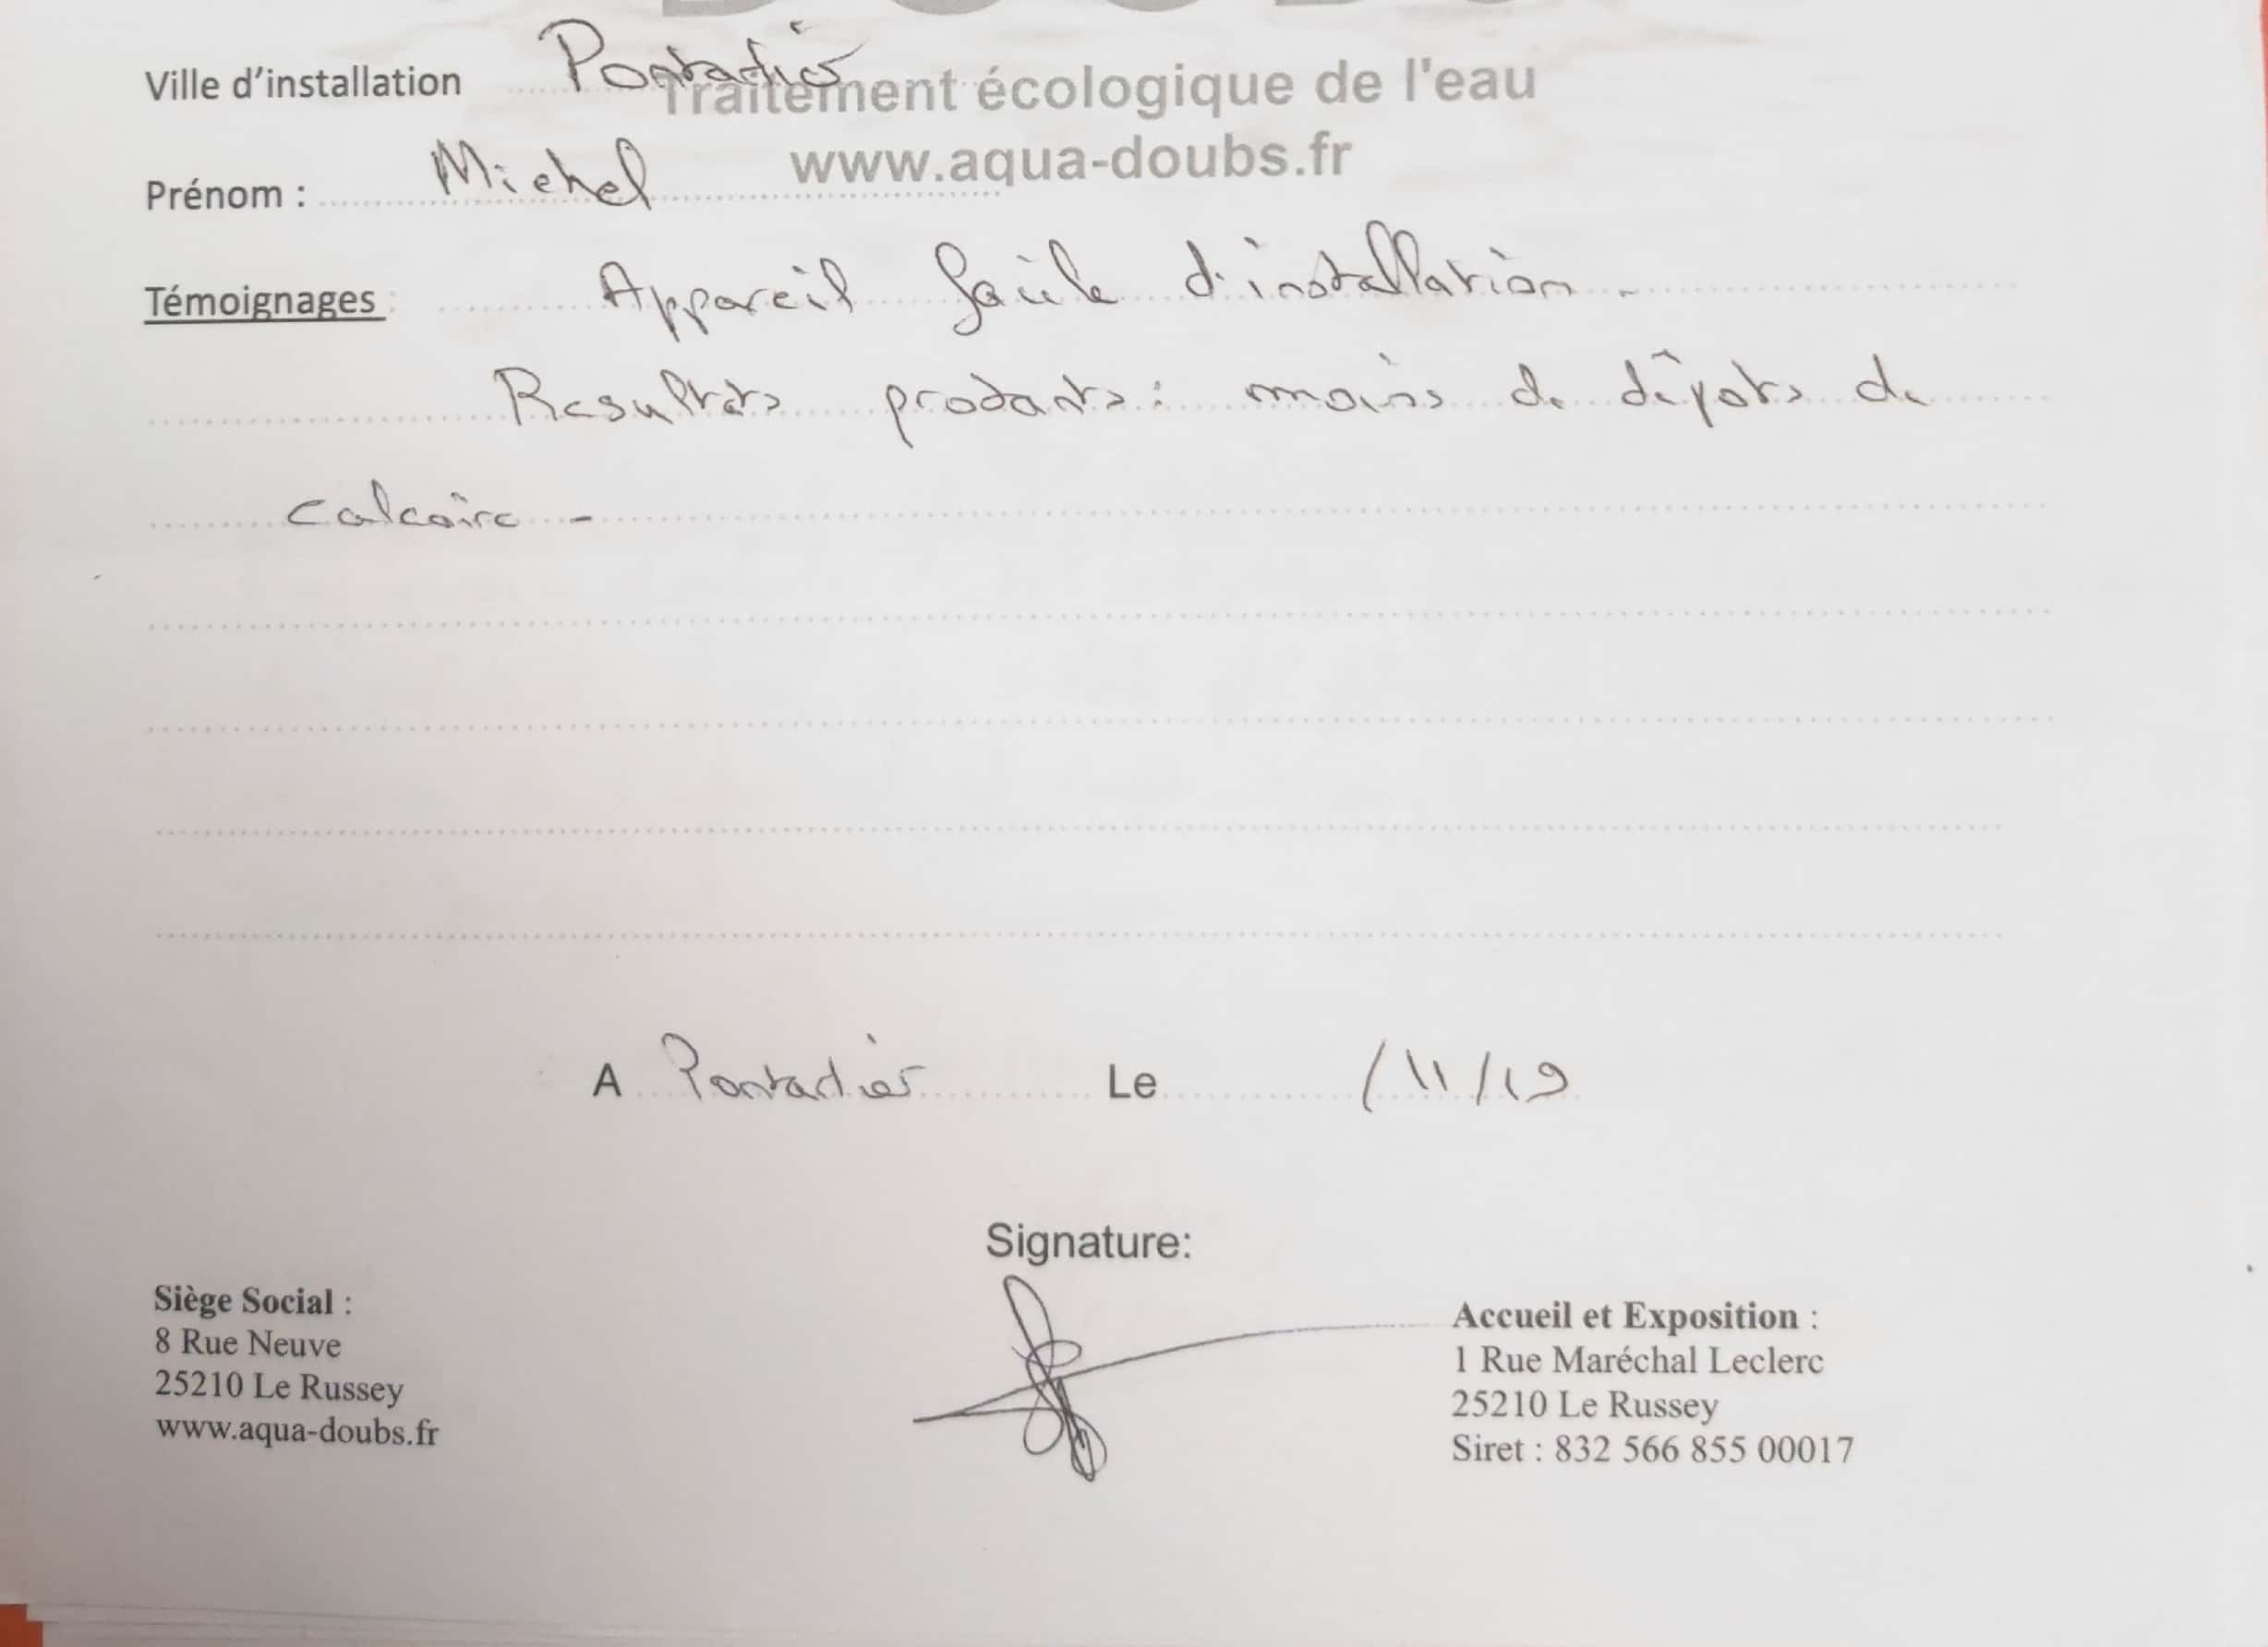 Ville d'installation Pontarlier
Traitement écologique de l'eau
www.aqua-doubs.fr
Prénom : Michel
Témoignages : Appareil facile d'installation -
Resultats probants : moins de dépots de
calcaire -
A Pontarlier Le /11/19
Signature:
Siège Social :
8 Rue Neuve
25210 Le Russey
www.aqua-doubs.fr
Accueil et Exposition :
1 Rue Maréchal Leclerc
25210 Le Russey
Siret : 832 566 855 00017